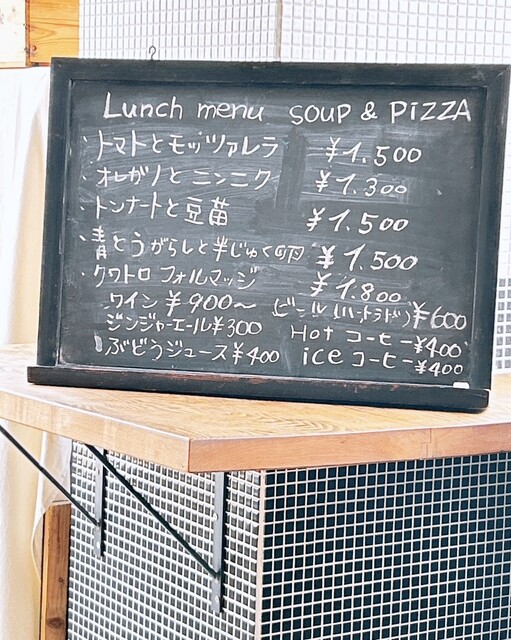 Lunch menu SOUP & PIZZA
・トマトとモッツァレラ ¥1.500
・オレガノとニンニク ¥1.300
・トンナートと豆苗 ¥1.500
・青とうがらしと半じゅく卵 ¥1.500
・クワトロ フォルマッジ ¥1.800
ワイン ¥900〜 ビール(ハートランド) ¥600
ジンジャーエール ¥300 Hot コーヒー ¥400
ぶどうジュース ¥400 ice コーヒー ¥400